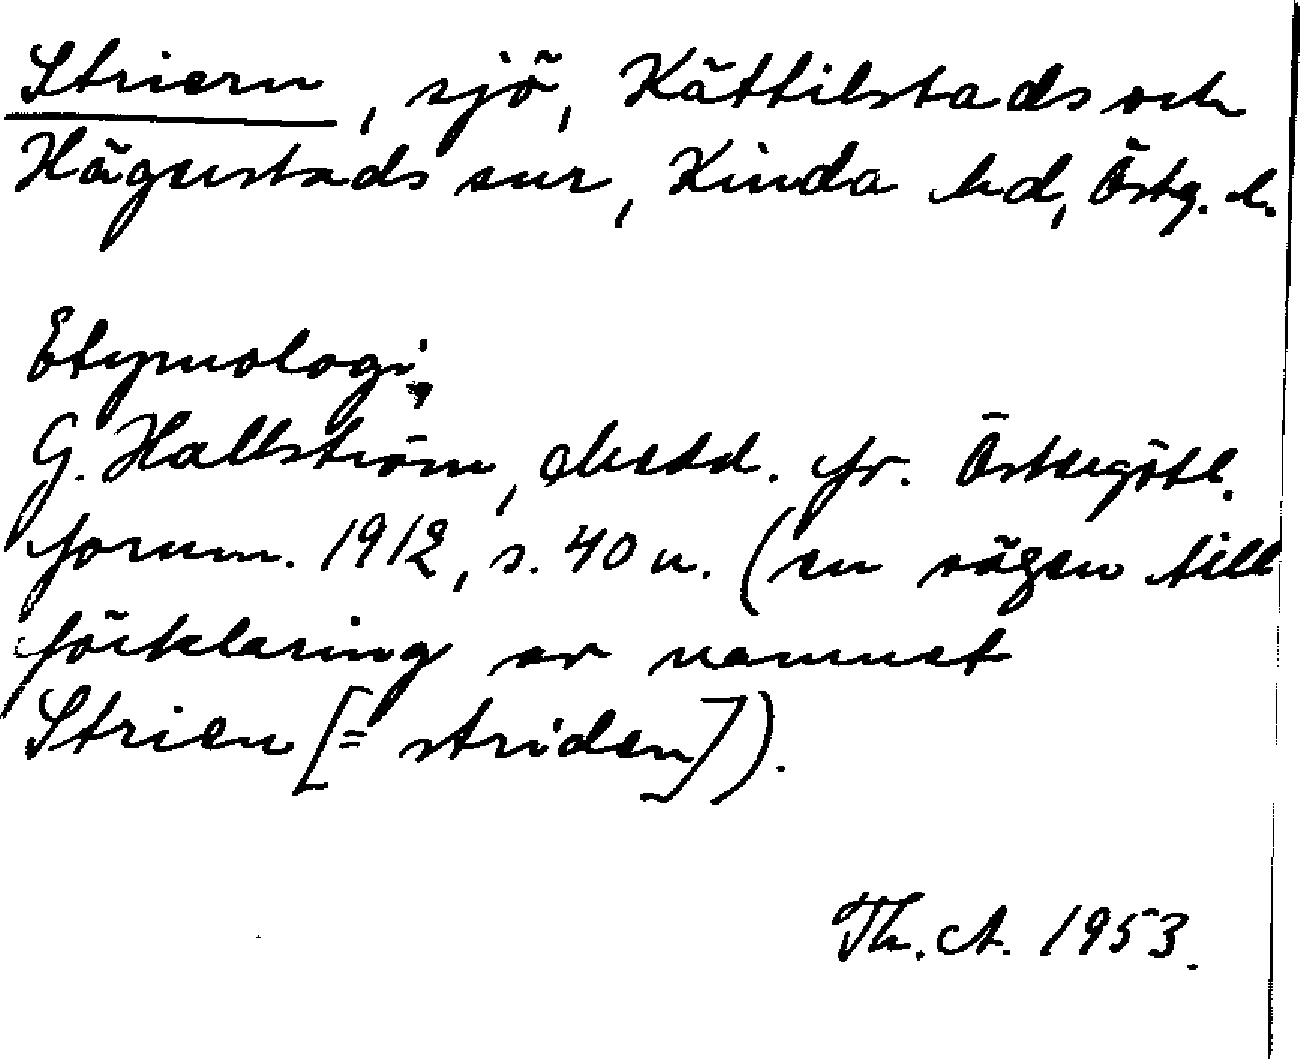 Striern, sjö, Kättilstads och
Hägerstads snr, Kinda hd, Östg. l.
Etymologi:
G. Hallström, Medd. fr. Östergötl.
fornm. 1912, s. 40 n. (en sägen till
förklaring av namnet
Strien [= striden]).
Th. A. 1953.